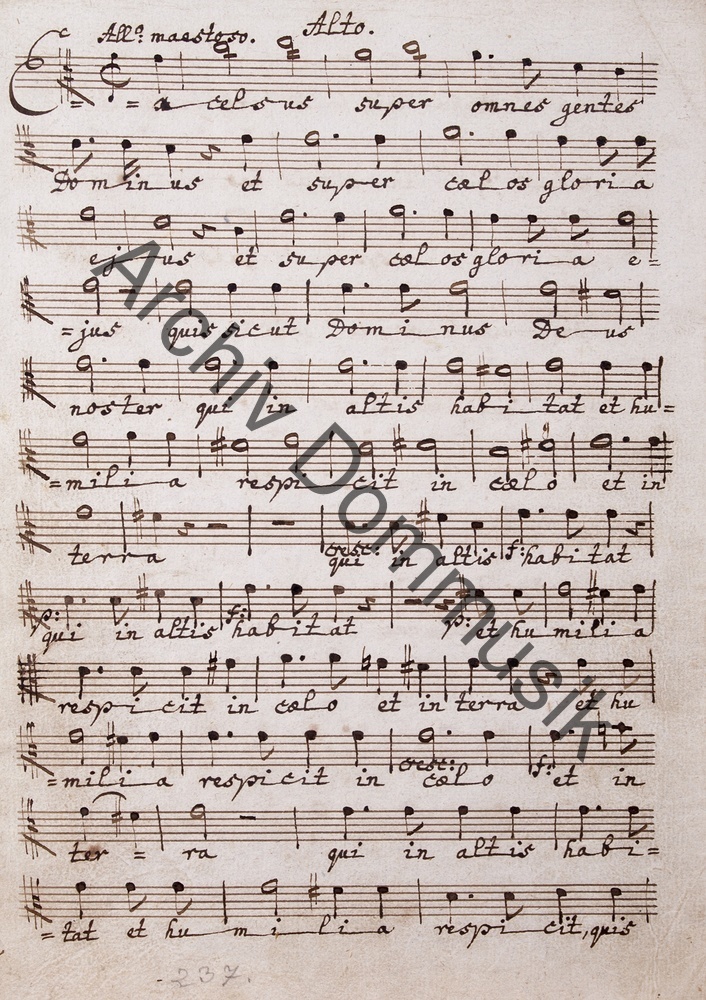 c All.º maestoso. Alto.
= = a celsus super omnes gentes
Dominus et super cælos gloria
ejus et super cælos gloria e=
=jus quis sicut Dominus Deus
noster qui in altis habitat et hu=
=milia respicit in cælo et in
terra cresc: qui in altis f: habitat
p: qui in altis f: habitat p: et humilia
respicit in cælo et in terra et hu
=milia respicit in cresc: cælo f: et in
ter = ra qui in altis habi=
=tat et humilia respicit, quis
237.
Archiv Dommusik